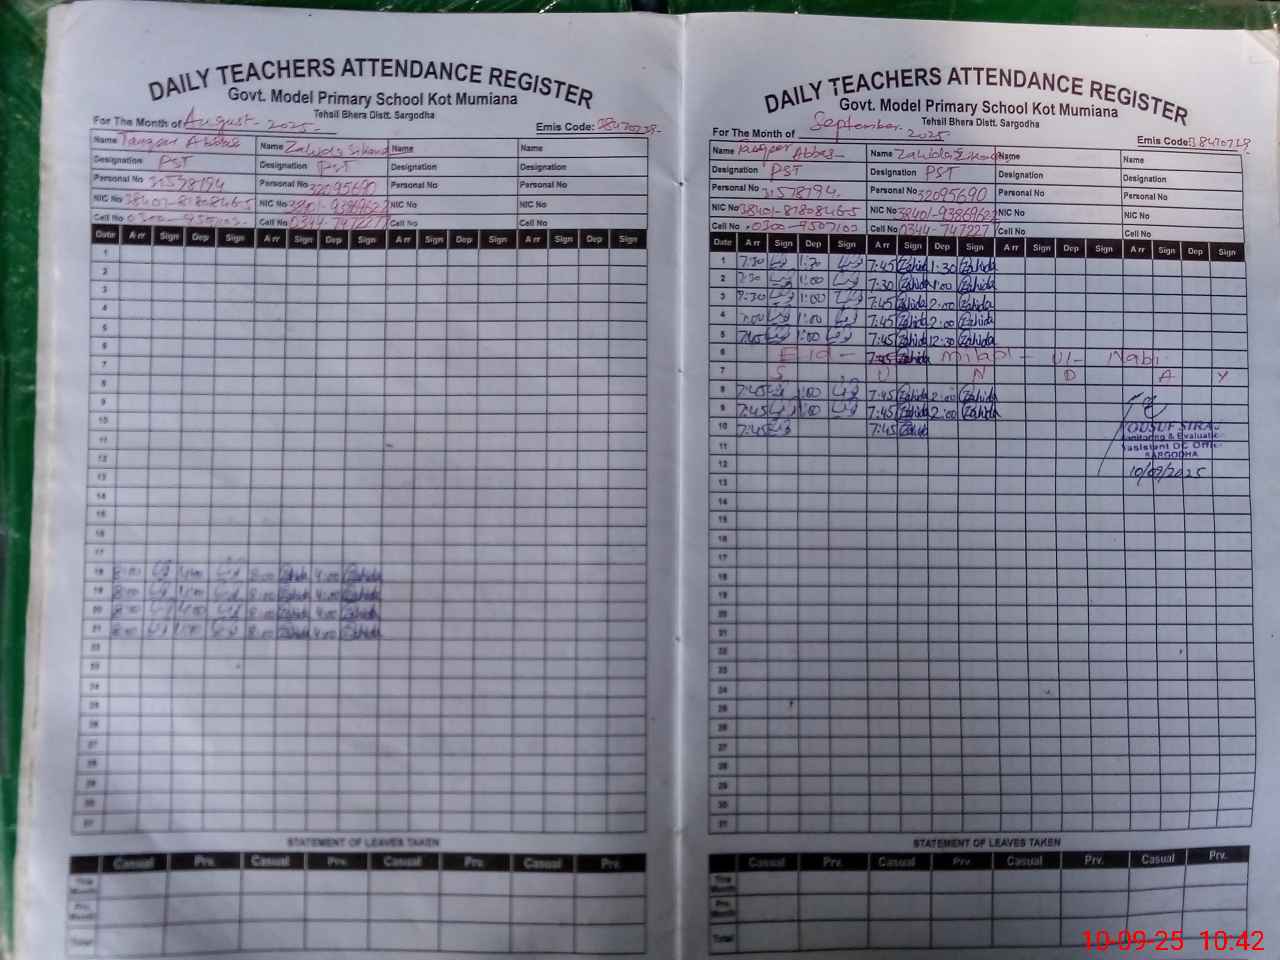 DAILY TEACHERS ATTENDANCE REGISTER
Govt. Model Primary School Kot Mumiana
Tehsil Bhera Distt. Sargodha
For The Month of August - 2025 - Emis Code: 38410729-
Name Abbas Name Zahida Name Name
Designation PST Designation PST Designation Designation
Personal No 31578194 Personal No 32095690 Personal No Personal No
NIC No 38401-8180846-5 NIC No NIC No NIC No
Cell No Cell No 0344-747227 Cell No Cell No
Date Arr Sign Dep Sign Arr Sign Dep Sign Arr Sign Dep Sign Arr Sign Dep Sign
1
2
3
4
5
6
7
8
9
10
11
12
13
14
15
16
17
18 8:00 4:00 8:00 Zahida 4:00 Zahida
19 8:00 4:00 8:00 Zahida 4:00 Zahida
20 8:00 4:00 8:00 Zahida 4:00 Zahida
21 8:00 8:00 Zahida 4:00 Zahida
22
23
24
25
26
27
28
29
30
31
STATEMENT OF LEAVES TAKEN
Casual Prv. Casual Prv. Casual Prv. Casual Prv.
This Month
Prv. Month
Total
DAILY TEACHERS ATTENDANCE REGISTER
Govt. Model Primary School Kot Mumiana
Tehsil Bhera Distt. Sargodha
For The Month of September 2025 Emis Code: 38410729
Name Abbas- Name Zahida Name Name
Designation PST Designation PST Designation Designation
Personal No 31578194. Personal No 32095690 Personal No Personal No
NIC No 38401-8180846-5 NIC No 38401-9386962 NIC No NIC No
Cell No 0300-9507103 Cell No 0344-747227 Cell No Cell No
Date Arr Sign Dep Sign Arr Sign Dep Sign Arr Sign Dep Sign Arr Sign Dep Sign
1 7:30 1:30 7:45 Zahida 1:30 Zahida
2 7:30 1:00 7:30 Zahida 1:00 Zahida
3 7:30 1:00 7:45 Zahida 2:00 Zahida
4 1:00 7:45 Zahida 2:00 Zahida
5 7:45 1:00 7:45 Zahida 12:30 Zahida
6 Eid - 7:45 Zahida Milad - Ul - Nabi
7 S U N D A Y
8 7:45 1:00 7:45 Zahida 2:00 Zahida
9 7:45 1:00 7:45 Zahida 2:00 Zahida
10 7:45 7:45 Zahida
11
12
13
14
15
16
17
18
19
20
21
22
23
24
25
26
27
28
29
30
31
YOUSUF SIRAJ
Monitoring & Evaluation
Assistant DC Office
SARGODHA
10/09/2025
STATEMENT OF LEAVES TAKEN
Casual Prv. Casual Prv. Casual Prv. Casual Prv.
This Month
Prv. Month
Total
10-09-25 10:42